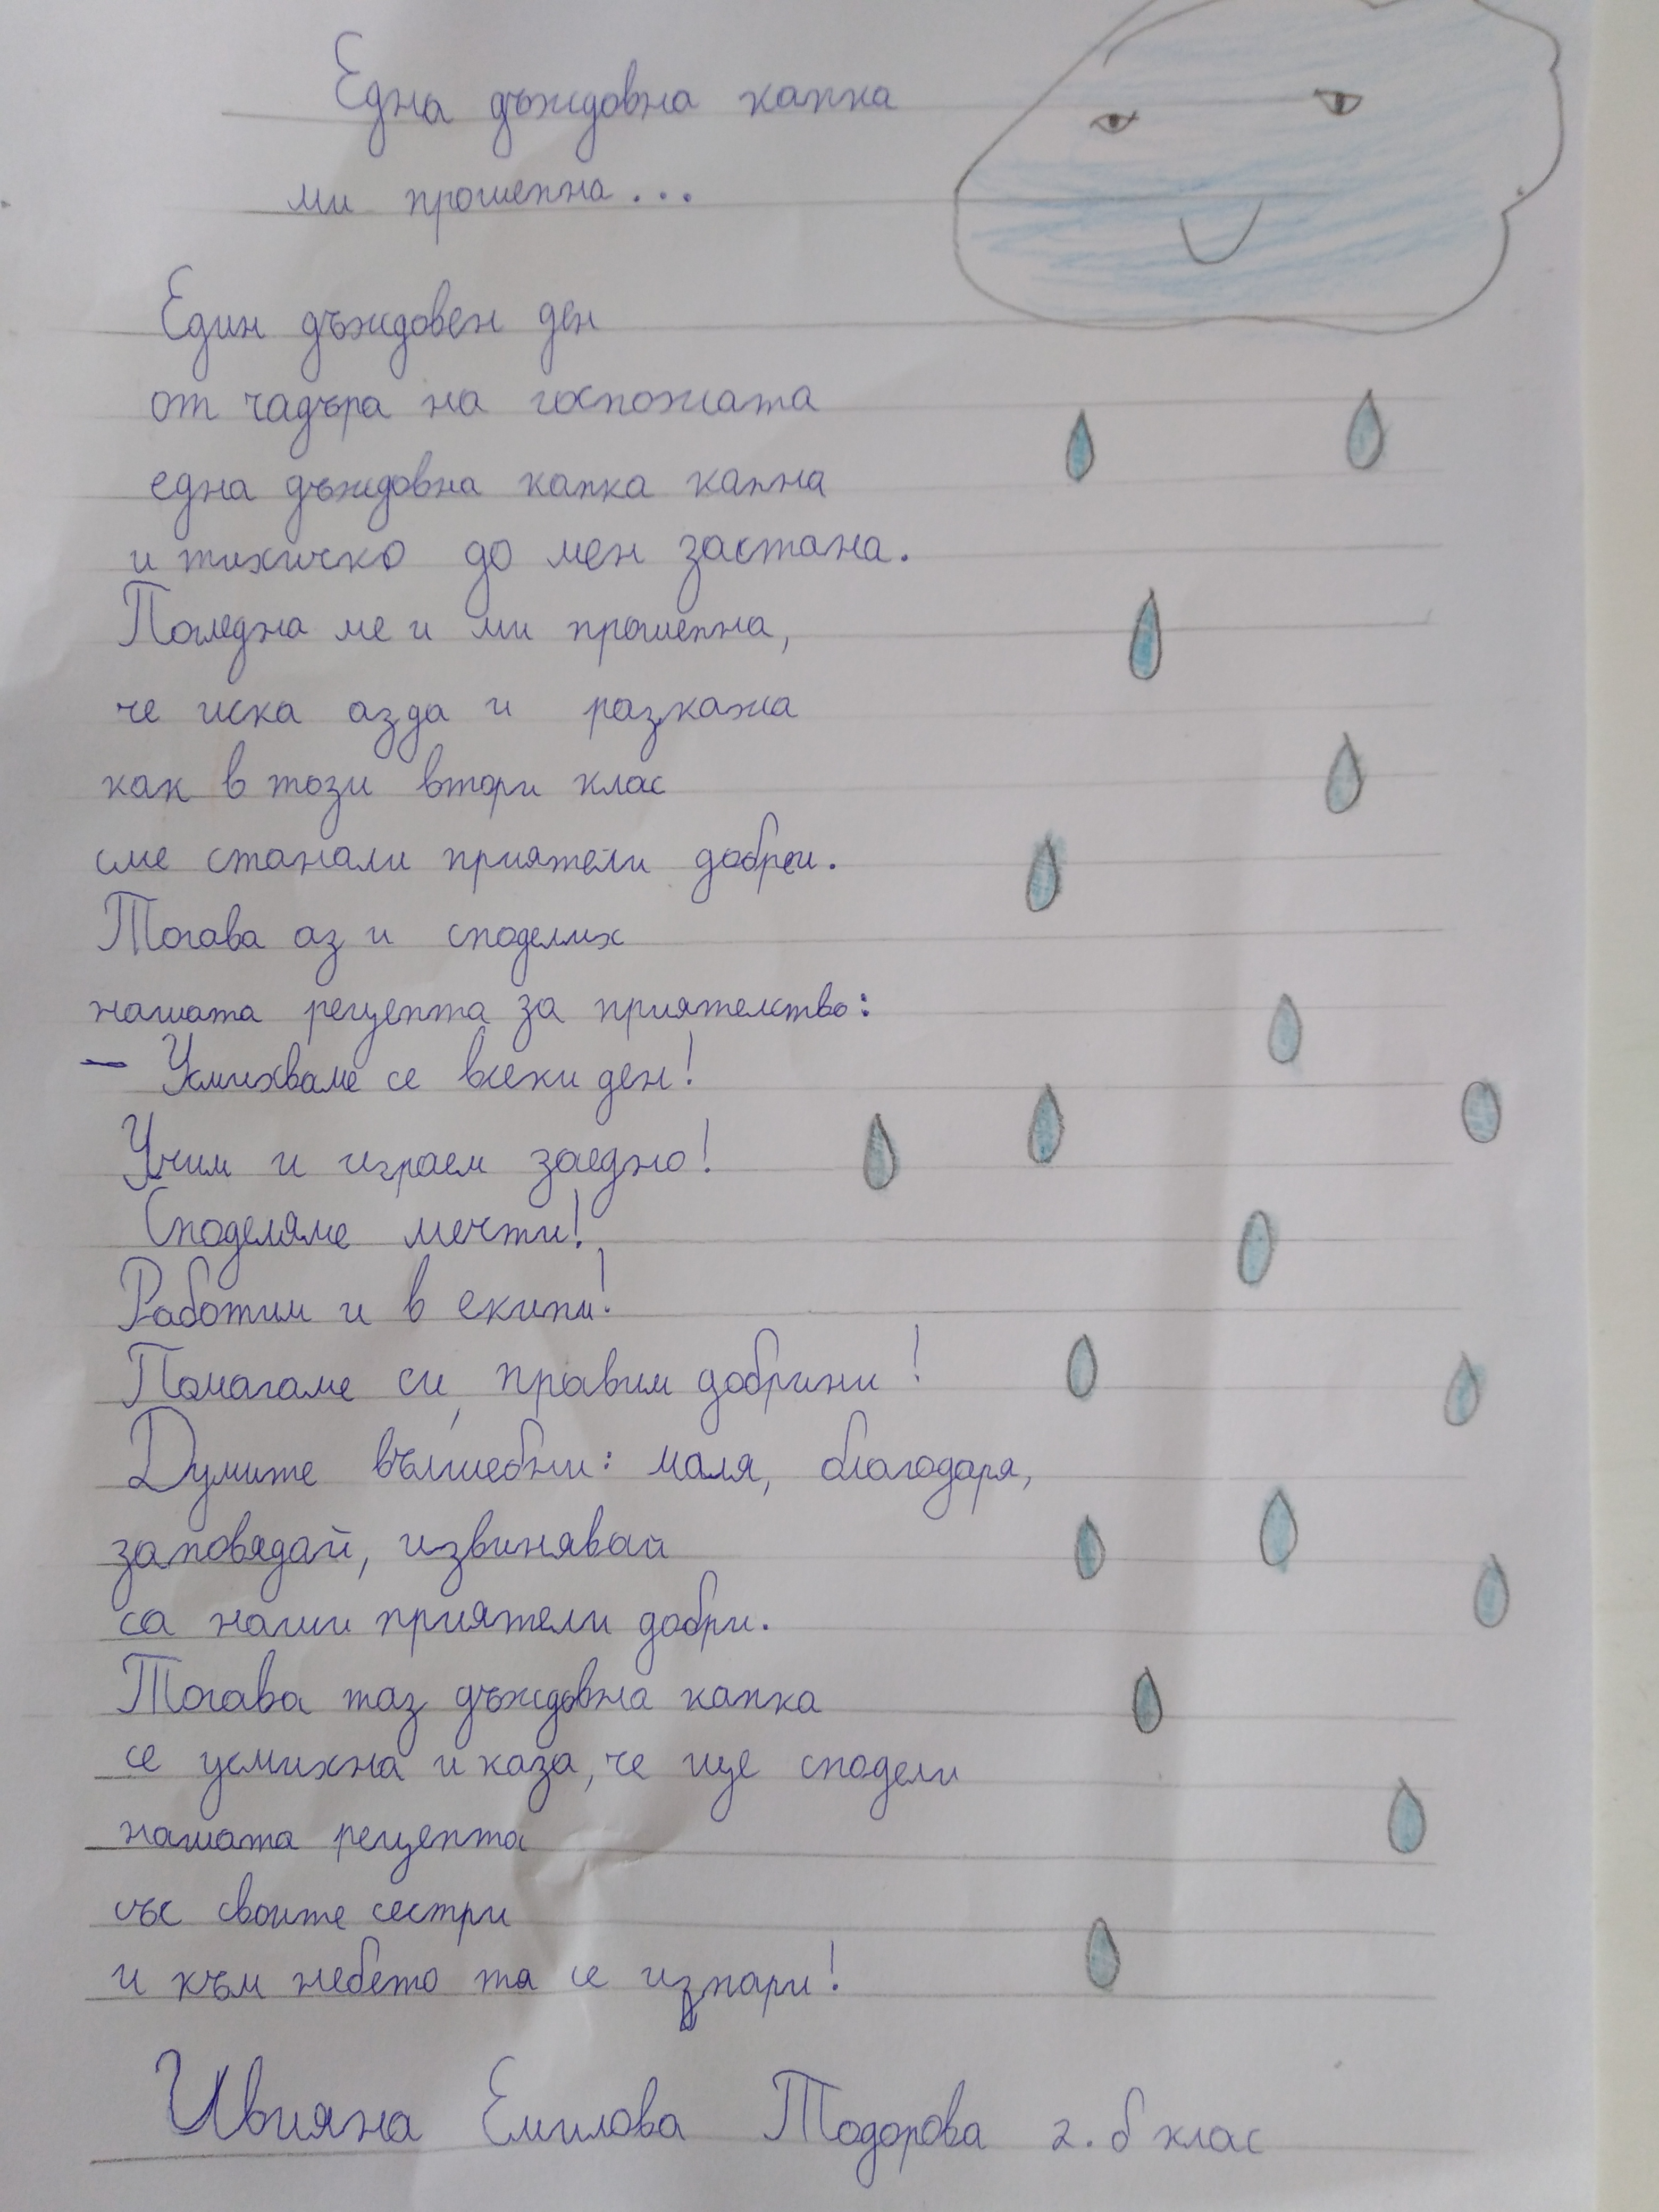 Една дъждовна капка
ми прошепна...
Един дъждовен ден
от чадъра на госпожата
една дъждовна капка капна
и тихичко до мен застана.
Погледна ме и ми прошепна,
че иска аз да и разкажа
как в този втори клас
сме станали приятели добри.
Тогава аз и споделих
нашата рецепта за приятелство:
– Усмихваме се всеки ден!
Учим и играем заедно!
Споделяме мечти!
Работим и в екипи!
Помагаме си, правим добрини!
Думите вълшебни: моля, благодаря,
заповядай, извинявай
са наши приятели добри.
Тогава таз дъждовна капка
се усмихна и каза, че ще сподели
нашата рецепта
със своите сестри
и към небето тя се изпари!
Ивияна Емилова Тодорова 2. б клас